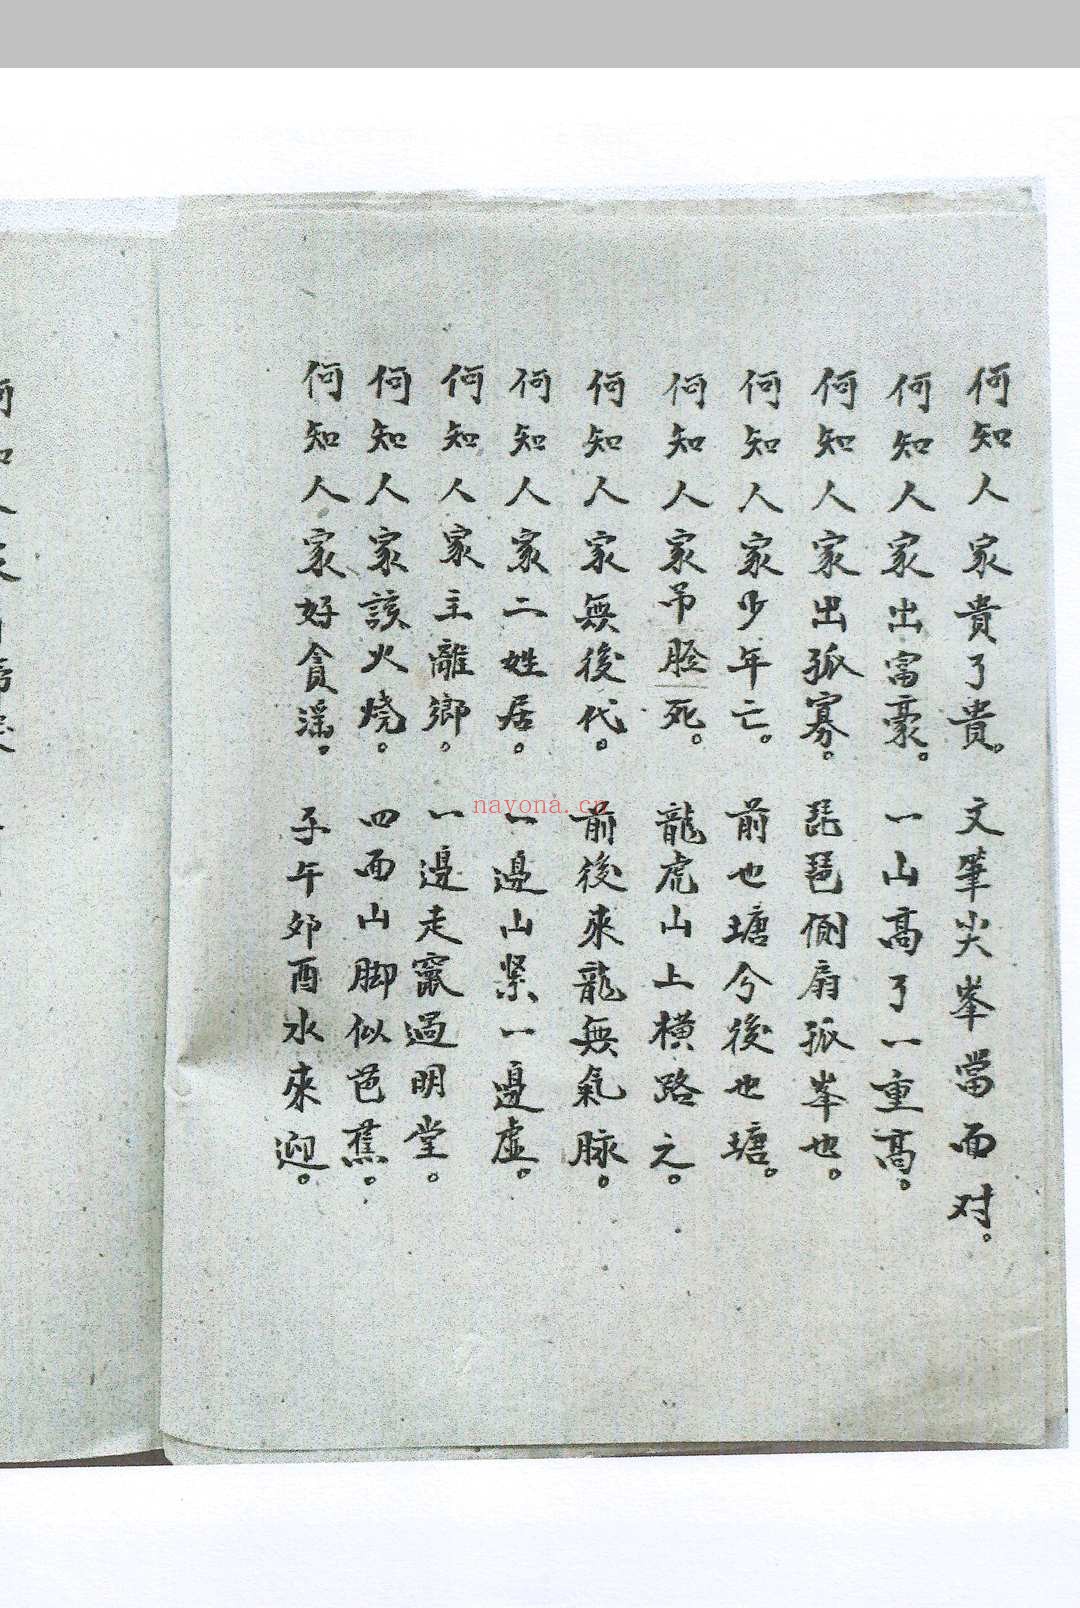 何知人家貴了貴。文筆尖峯當面对。
何知人家出富豪。一山高了一重高。
何知人家出孤寡。琵琶側扇孤峯也。
何知人家少年亡。前也塘兮後也塘。
何知人家吊脸死。龍虎山上横路之。
何知人家無後代。前後來龍無氣脉。
何知人家二姓居。一邊山紧一邊虚。
何知人家主離鄉。一邊走竄過明堂。
何知人家該火燒。四面山脚似芭蕉。
何知人家好貪淫。子午夘酉水來迎。
nayona.cn